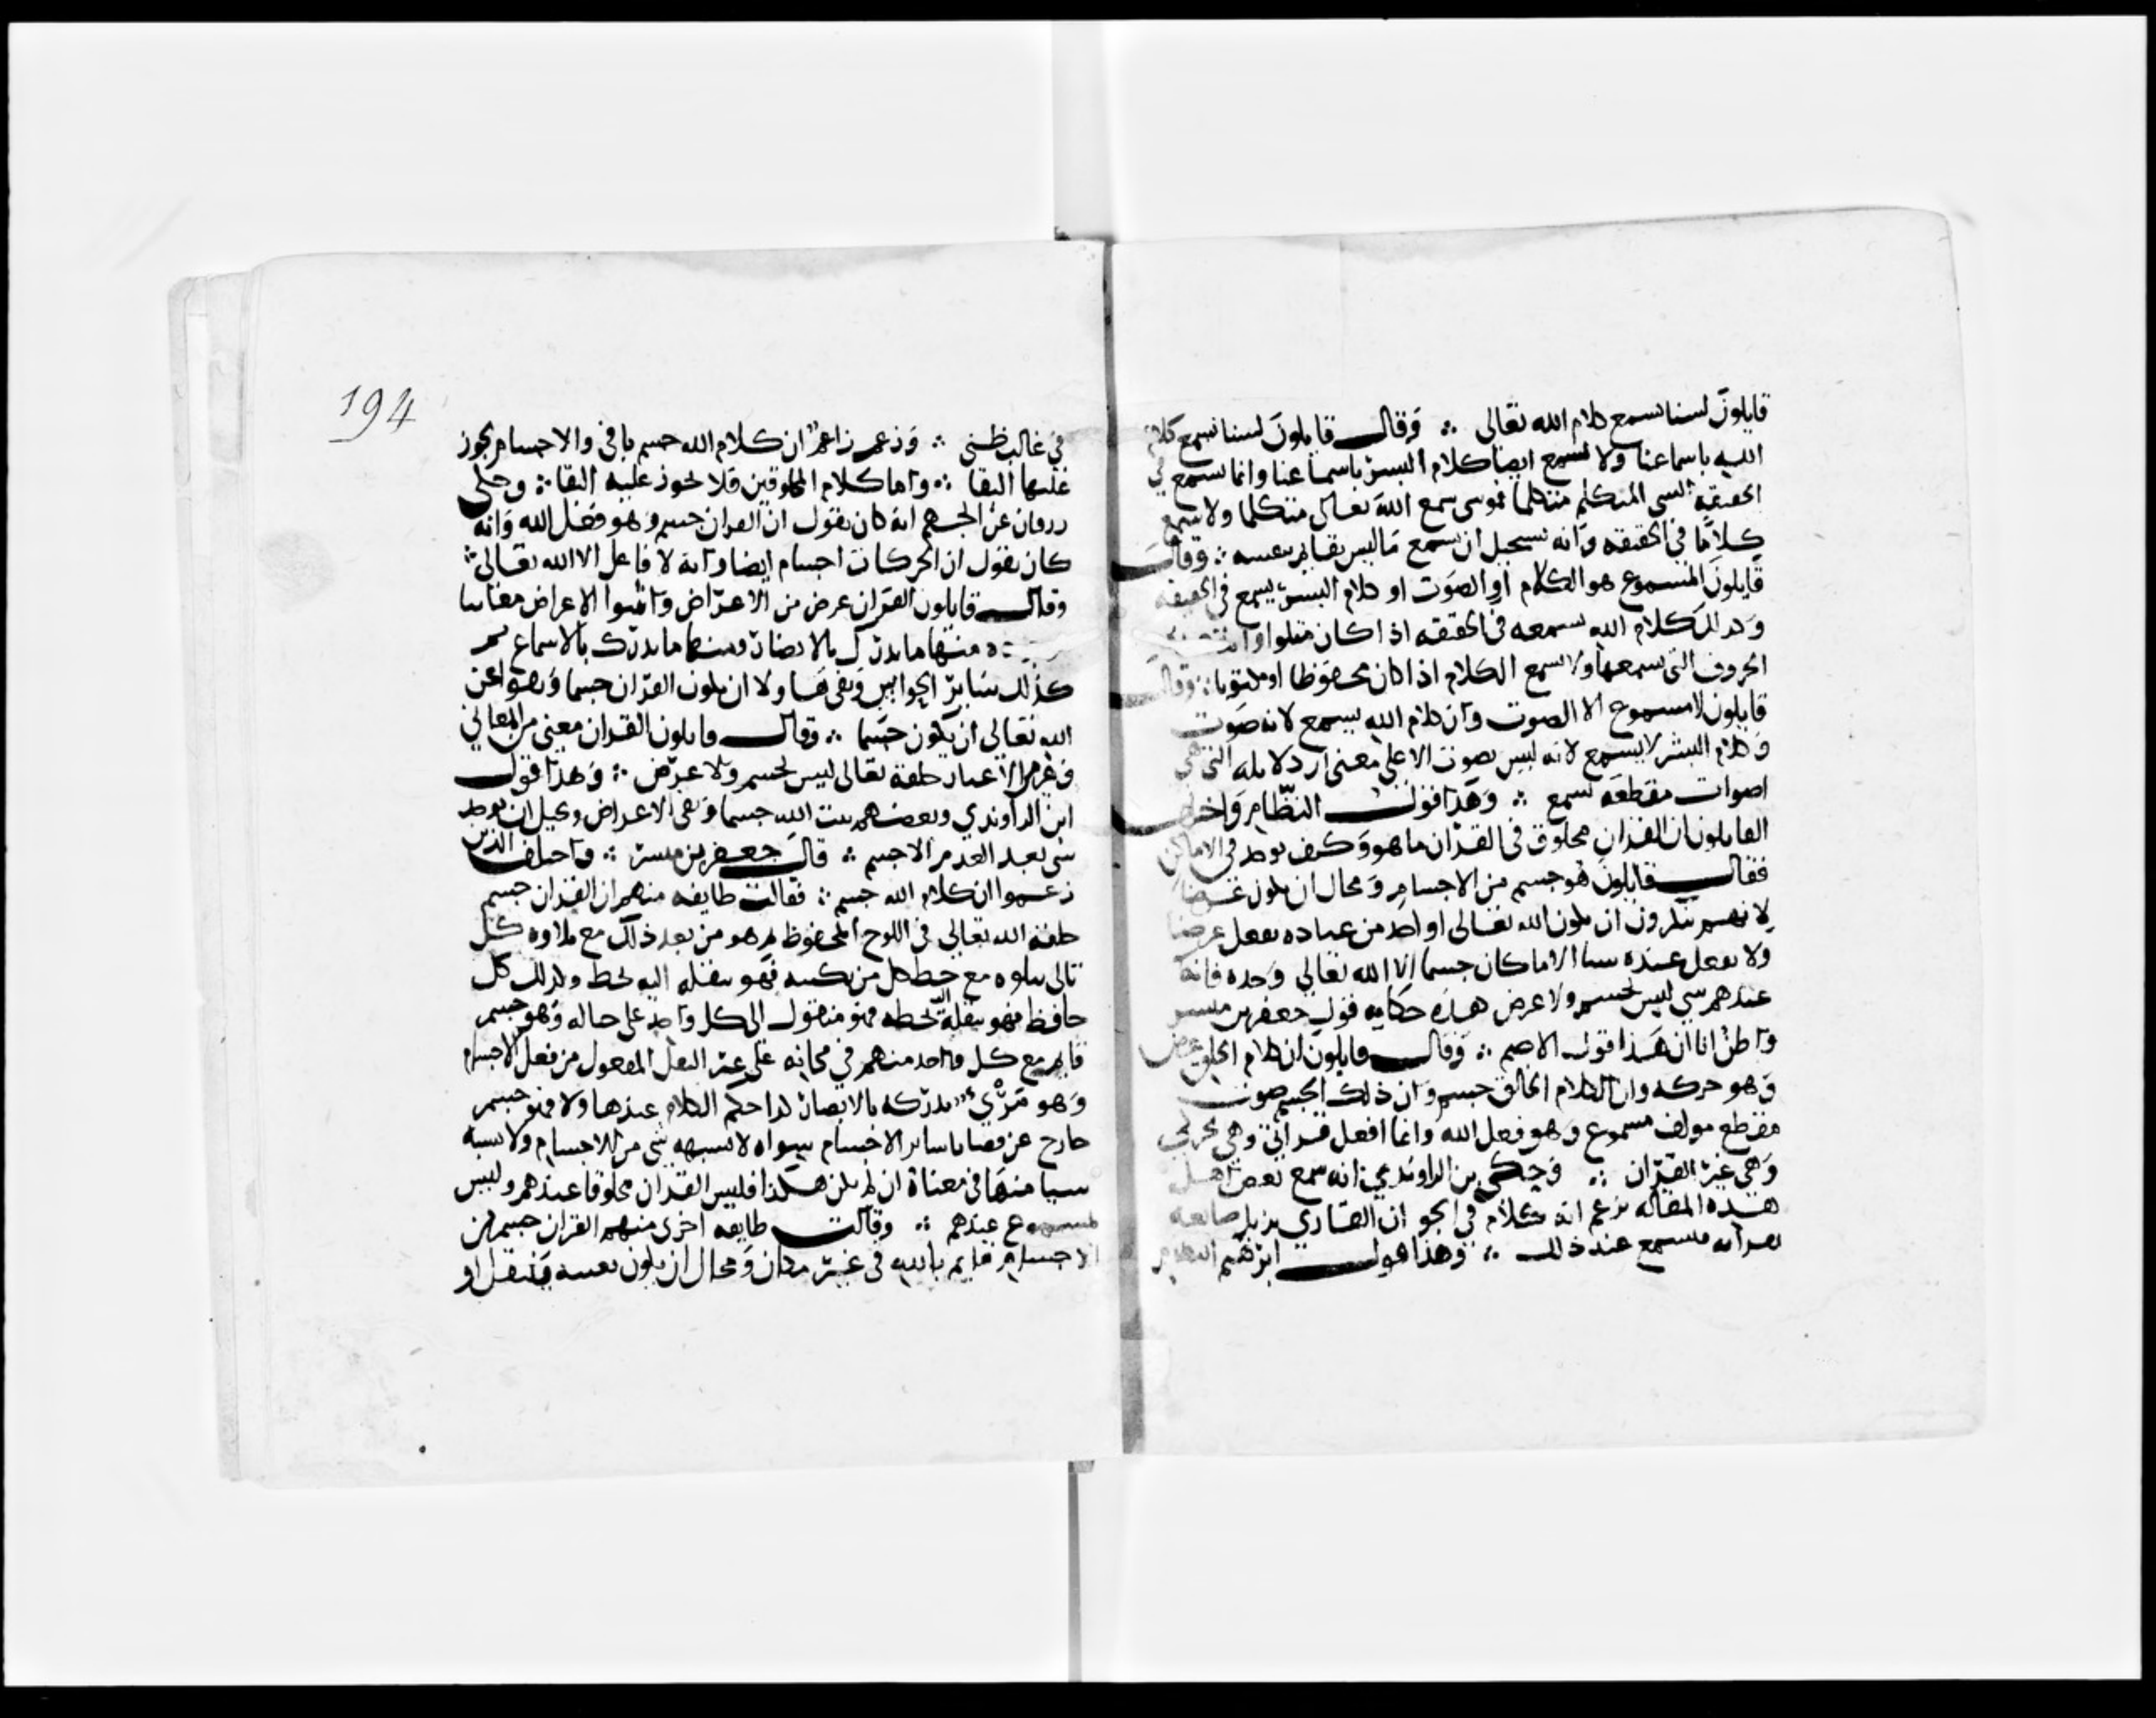 قايلون لسنا نسمع كلام الله تعالى ∴ وقال قايلون لسنا نسمع كلام
الله باسماعنا ولا نسمع ايضا كلام البشر باسماعنا وانما نسمع في
الحقيقة الشي المتكلم متكلما فموسى سمع الله تعالى متكلما ولا نسمع
كلاما في الحقيقه وانه يستحيل ان يسمع ما ليس بقايم بنفسه ∴ وقال
قايلون المسموع هو الكلام او الصوت او كلام البشر يسمع في الحقيقه
وكذلك كلام الله نسمعه في الحقيقه اذا كان متلوا وانه
الحروف التي نسمعها ولا نسمع الكلام اذا كان محفوظا او مكتوبا ∴ وقال
قايلون لا مسموع الا الصوت وان كلام الله يسمع لانه صوت
وكلام البشر لا يسمع لانه ليس بصوت الا على معنى ان دلايله التي هي
اصوات مقطعه تسمع ∴ وهذا قول النظام واختلف
القايلون ان القران مخلوق في القران ما هو وكيف يوجد في الاماكن
فقال قايلون هو جسم من الاجسام ومحال ان يكون عرضا
لانهم ينكرون ان يكون الله تعالى او احد من عباده يفعل عرضا
ولا يفعل عندهم شيا الا ما كان جسما الا الله تعالى وحده فانه
عندهم شي ليس بجسم ولا عرض هذه حكايه قول جعفر بن مبشر
واظن انا ان هذا قول الاصم ∴ وقال قايلون ان كلام الخلق عرض
وهو حركه وان الكلام الخالق جسم وان ذلك الجسم صوت
مقطع مولف مسموع وهو فعل الله وانما افعل قراتي وهي حركتي
وهي غير القران ∴ وحكى بن الراوندي انه سمع بعض اهل
هذه المقاله يزعم انه كلام في الجو ان القاري يزيل مانعه
بقراته فيسمع عند ذلك ∴ وهذا قول ابرهيم النظام
194
في غالب ظني ∴ وزعم زاعم ان كلام الله جسم باقي والاجسام يجوز
عليها البقا ∴ واما كلام المخلوقين فلا يجوز عليه البقا ∴ وحكى
زرقان عن الجهم انه كان يقول ان القران جسم وهو فعل الله وانه
كان يقول ان الحركات اجسام ايضا وانه لا فاعل الا الله تعالى ∴
وقال قايلون القران عرض من الاعراض واثبتوا الاعراض معانيا
منها ما يدرك بالابصار ومنها ما يدرك بالاسماع ثم
كذلك ساير الحواس ونفى هاولا ان يكون القران جسما ونفوا عن
الله تعالى ان يكون جسما ∴ وقال قايلون القران معنى من المعاني
وعين من الاعيان خلقه تعالى ليس بجسم ولا عرض ∴ وهذا قول
ابن الراوندي وبعضهم يثبت الله جسما ونفى الاعراض ويحيل ان يوجد
شي بعد العدم الا جسم ∴ قال جعفر بن مبشر ∴ واختلف الذين
زعموا ان كلام الله جسم ∴ فقالت طايفه منهم ان القران جسم
خلقه الله تعالى في اللوح المحفوظ ثم هو من بعد ذلك مع تلاوه كل
تالي يتلوه مع خط كل من يكتبه فهو ينقله اليه بخط وكذلك كل
حافظ فهو ينقله بحفظه فهو منقول الى كل واحد على حاله وهو جسم
قايم مع كل واحد منهم في مكانه على غير النقل المعقول من نقل الاجسام
وهو مرئي يدركه بالابصار كذا حكم الكلام عندها ولا فهو جسم
خارج عن قضايا ساير الاجسام سواه لا يشبهه شي من الاجسام ولا يشبه
شيا منها في معناه ان لم يكن هكذا فليس القران مخلوقا عندهم وليس
بمسموع عندهم ∴ وقالت طايفه اخرى منهم القران جسم من
الاجسام قايم بالله في غير مكان ومحال ان يكون بعينه ينتقل او